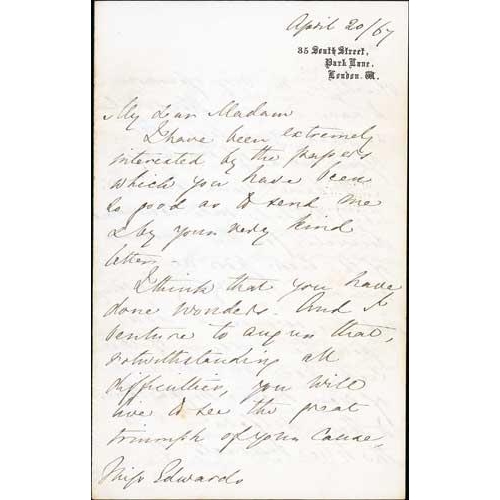 April 20/67
35 South Street,
Park Lane,
London. W.
My dear Madam
I have been extremely
interested by the papers
which you have been
so good as to send me
& by your very kind
letter.
I think that you have
done wonders. And I
venture to augur that,
notwithstanding all
difficulties, you will
live to see the great
triumph of your cause,
Miss Edwards